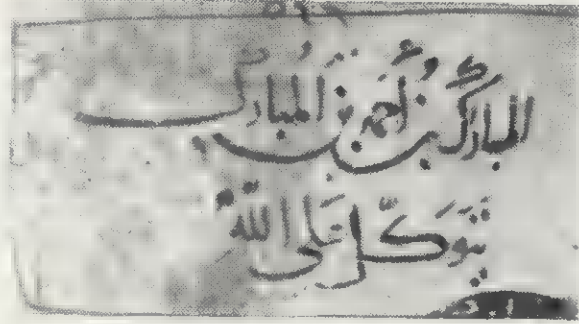 المبارك بن أحمد بن المبارك
يتوكّل على الله